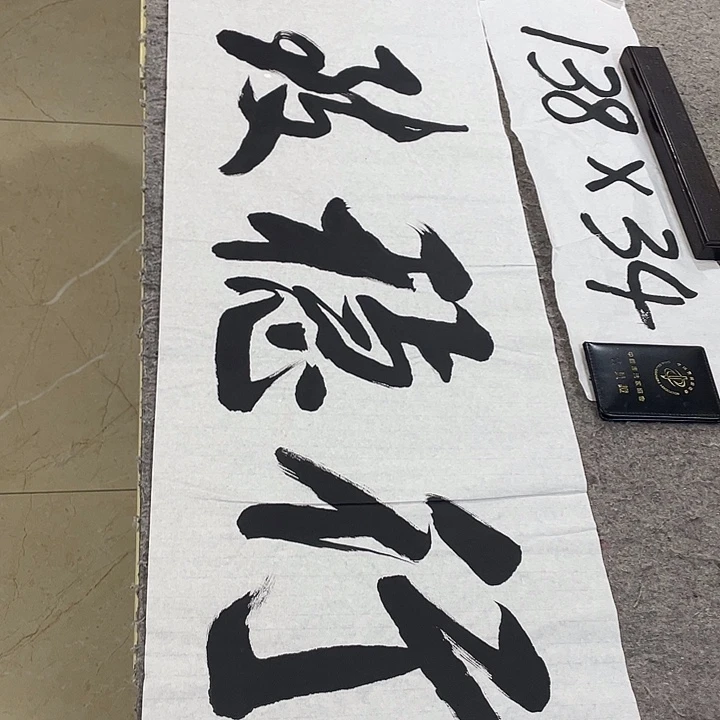 行稳致
138 x 34